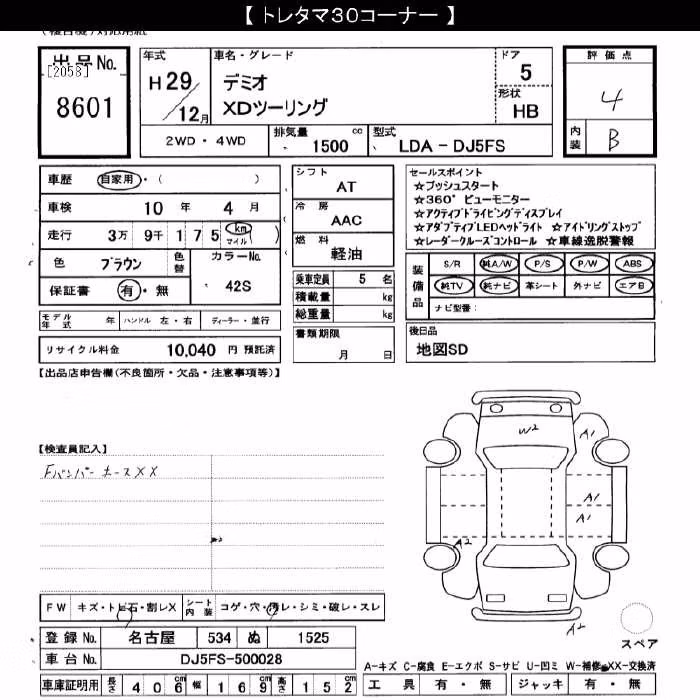 【 トレタマ30コーナー 】
出品No.
[2058]
8601
年式
H 29/12月
車名・グレード
デミオ
XDツーリング
ドア
5
形状
HB
評価点
4
内装
B
2WD・4WD
排気量 1500 cc
型式 LDA - DJ5FS
車歴 自家用・( )
車検 10 年 4 月
走行 3万 9千 1 7 5 km マイル )
色 ブラウン 色替 カラーNo.
42S
保証書 有・無
シフト
AT
冷房
AAC
燃料
軽油
乗車定員 5 名
積載量 kg
総重量 kg
書類期限
月 日
セールスポイント
☆プッシュスタート
☆360°ビューモニター
☆アクティブドライビングディスプレイ
☆アダプティブLEDヘッドライト ☆アイドリングストップ
☆レーダークルーズコントロール ☆車線逸脱警報
装備品
S/R 純A/W P/S P/W ABS
純TV 純ナビ 革シート 外ナビ エアB
ナビ型番:
モデル年式 年 ハンドル 左・右 ディーラー・並行
リサイクル料金 10,040 円 預託済
後日品
地図SD
【出品店申告欄(不良箇所・欠品・注意事項等)】
【検査員記入】
Fバンパー ホースXX
W2
A1
A1
A1
A2
A2
スペア
FW キズ・トビ石・割レX シート内装 コゲ・穴・汚レ・シミ・破レ・スレ
登録No. 名古屋 534 ぬ 1525
車台No. DJ5FS-500028
A-キズ C-腐食 E-エクボ S-サビ U-凹ミ W-補修 XX-交換済
車庫証明用 長さ 4 0 6 cm 幅 1 6 9 cm 高さ 1 5 2 cm
工具 有・無 ジャッキ 有・無